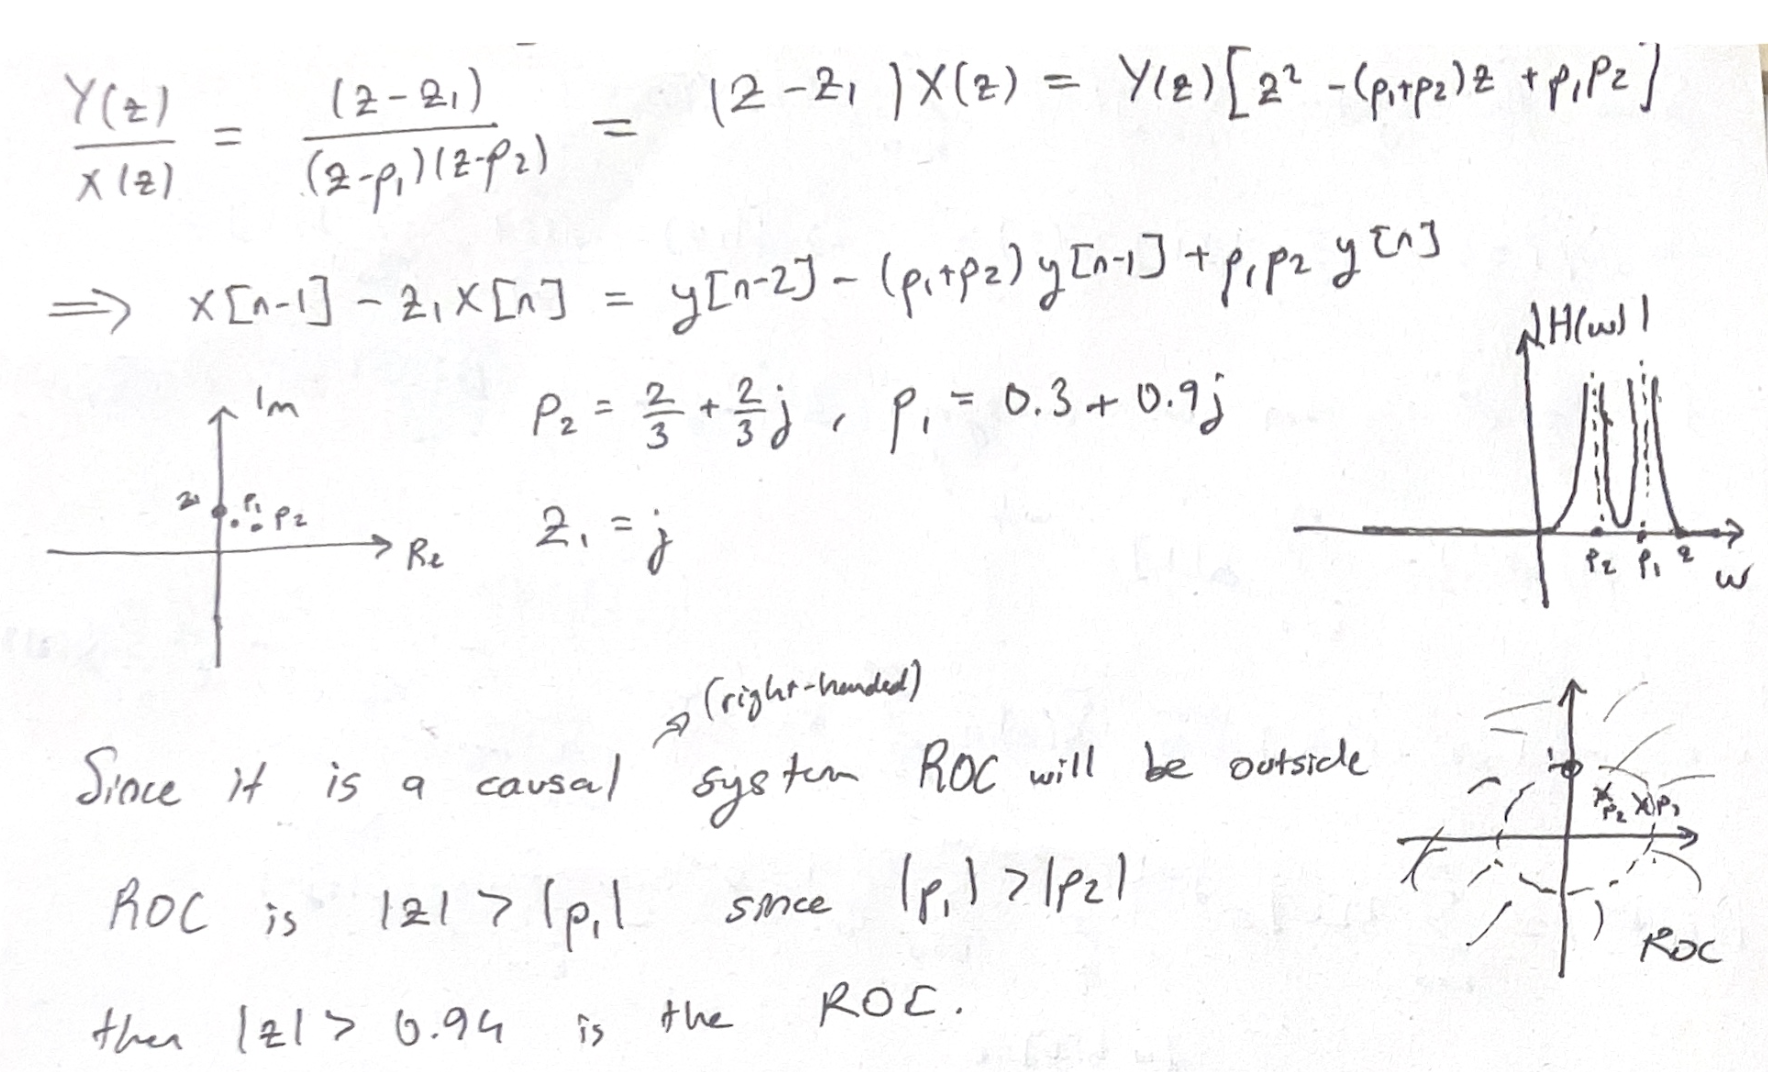 Y(z)/X(z) = (z-z₁)/((z-p₁)(z-p₂)) = (z-z₁)X(z) = Y(z)[z² -(p₁+p₂)z + p₁p₂]
⇒ x[n-1] - z₁x[n] = y[n-2] - (p₁+p₂)y[n-1] + p₁p₂ y[n]
|H(w)|
Im
p₂ = 2/3 + 2/3 j , p₁ = 0.3 + 0.9j
z₁ p₁ p₂
Re
z₁ = j
p₂ p₁ z
w
(right-handed)
Since it is a causal system ROC will be outside
p₂ p₁
ROC is |z| > |p₁| since |p₁| > |p₂|
ROC
then |z| > 0.94 is the ROC.